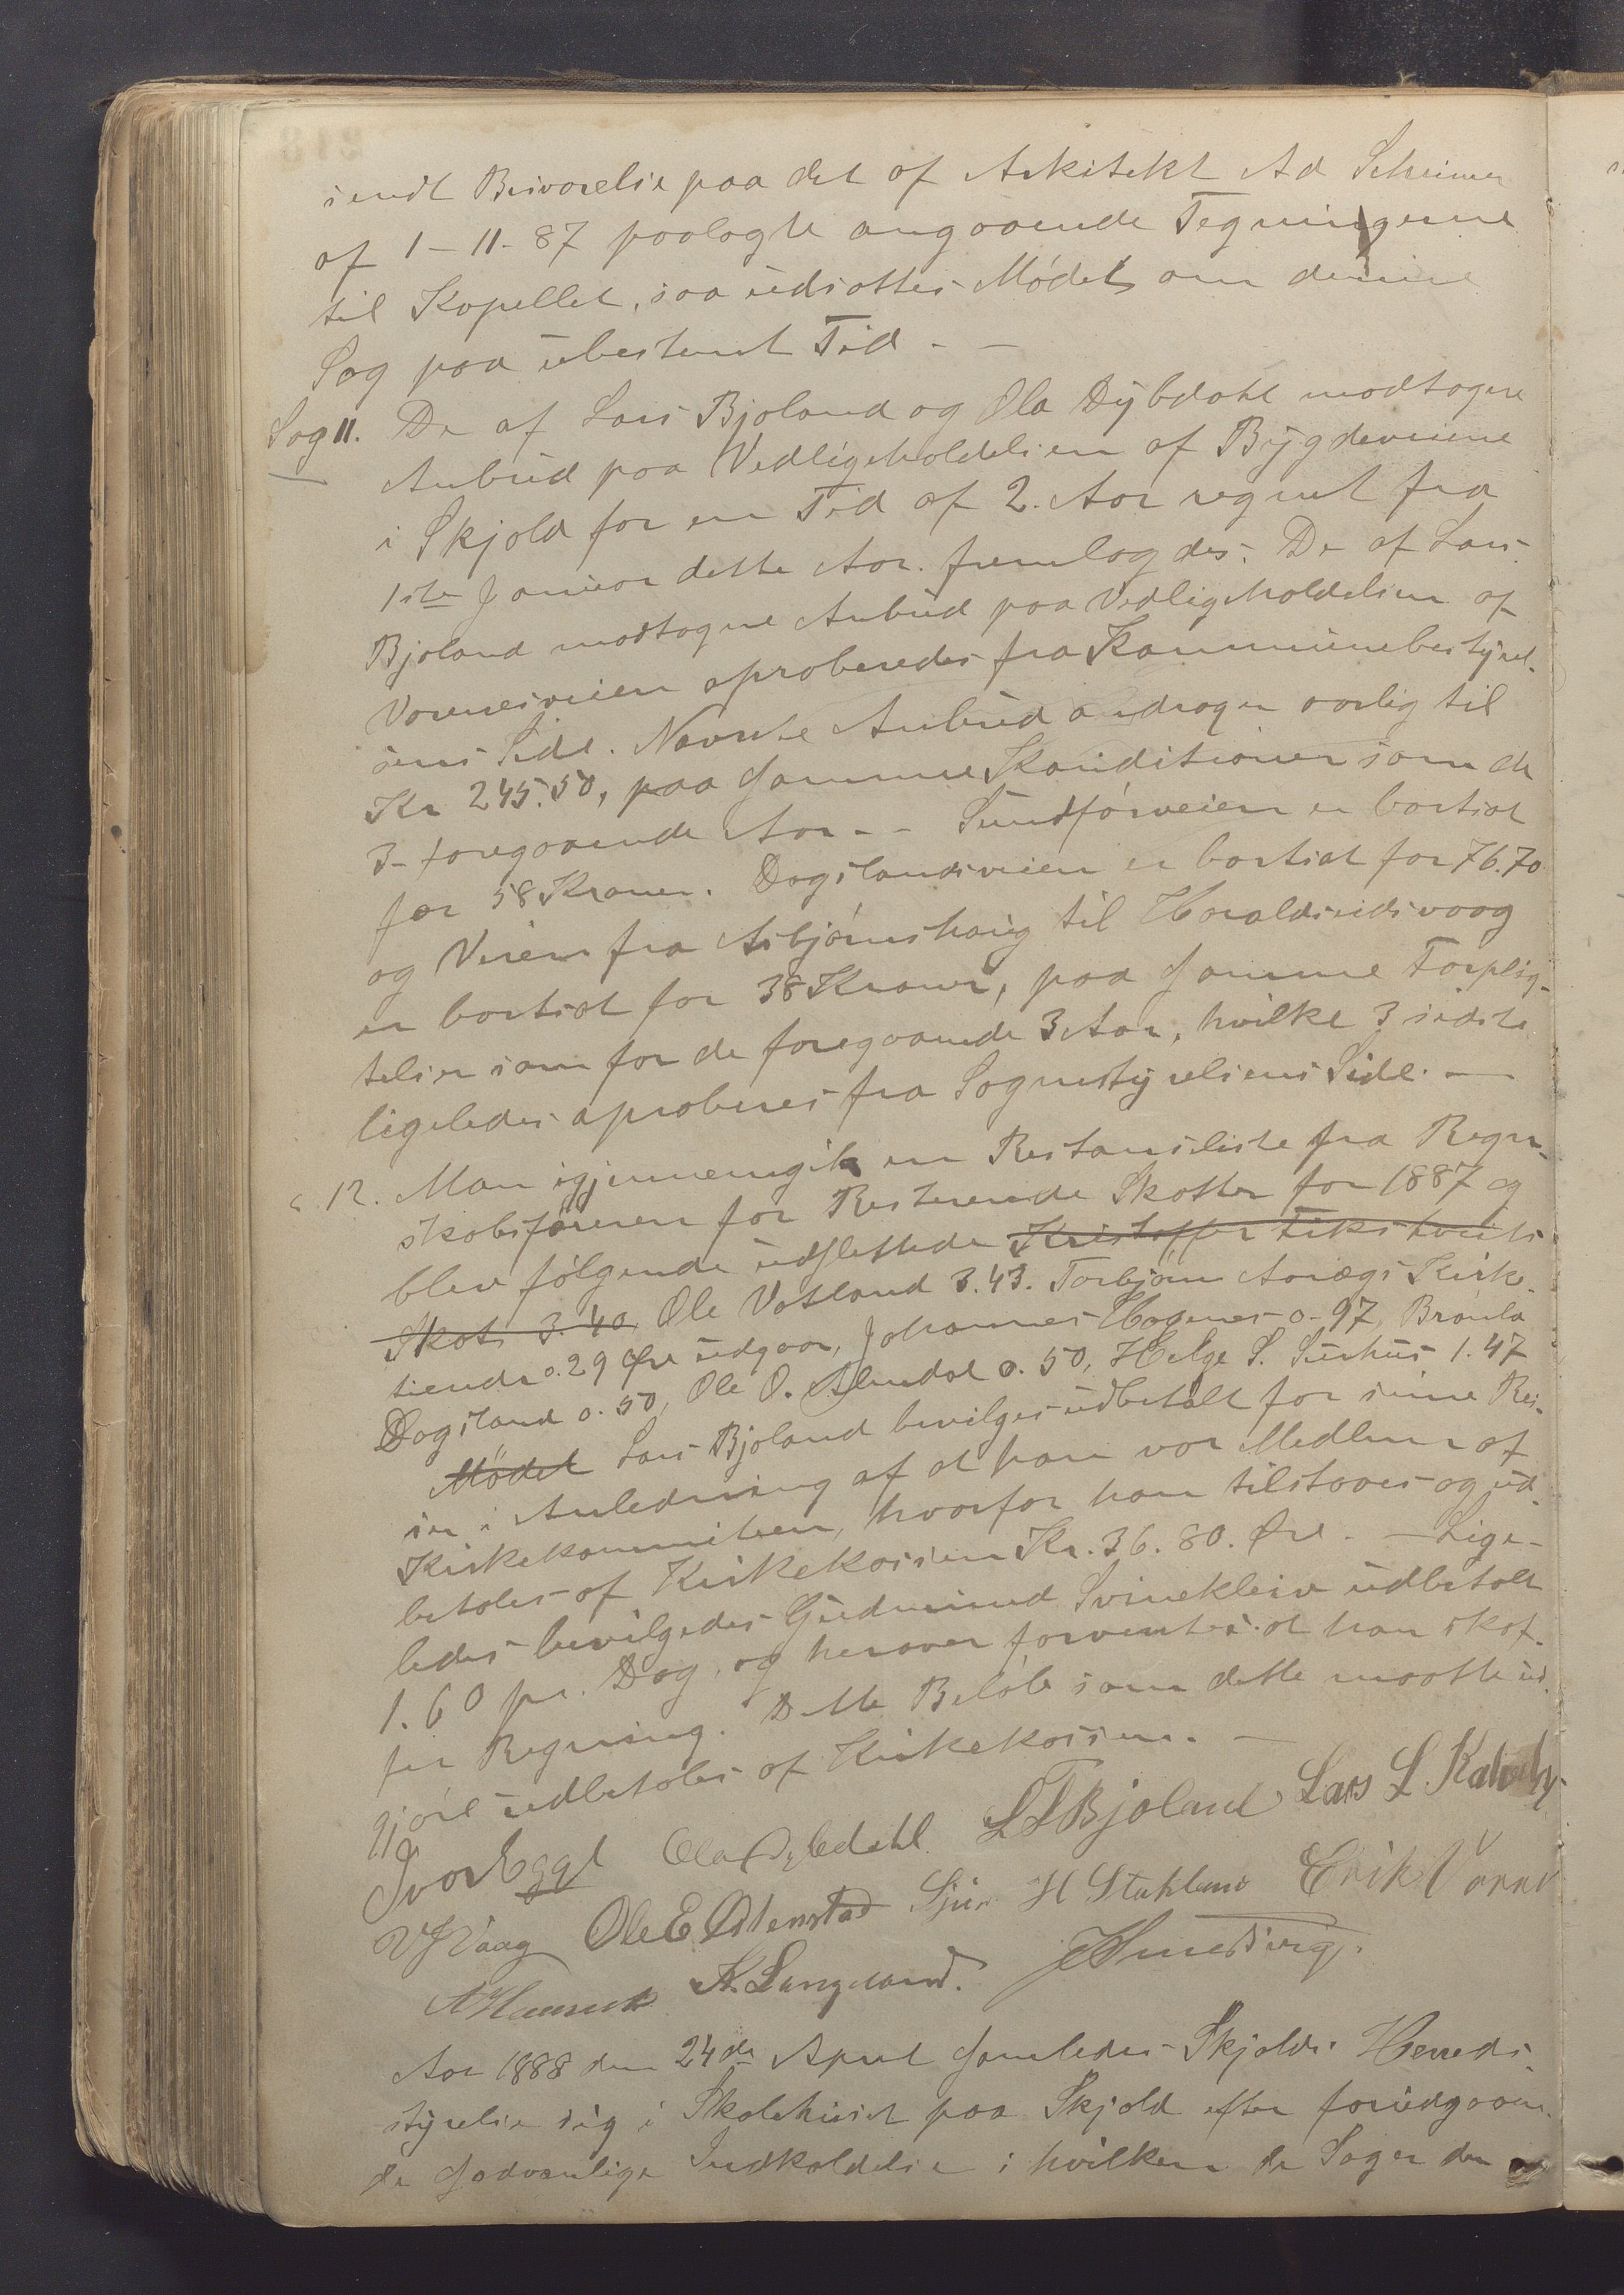 sendt Besvarelse paa det af Arkitekt Ad Scheirner
af 1-11-87 paalagte angaaende Tegningerne
til Kapellet, saa udsattes Mödet om denne
Sag paa ubestemt Tid. —
Sag 11. De af Lars Bjoland og Ola Dybdahl modtagne
Anbud paa Vedligeholdelsen af Bygdeveiene
i Skjold for en Tid af 2. Aar regnet fra
1ste Januar dette Aar. fremlagdes. De af Lars
Bjoland modtagne Anbud paa Vedligeholdelsen af
Vormesveien aproberedes fra Kommunebestyrel-
sens Side. Nævnte Anbud andrager aarlig til
Kr 245.50, paa samme Konditioner som de
3- foregaaende Aar. - Sundförveien er bortsat
for 58 Kroner. Dagslandsveien er bortsat for 76.70
og Veien fra Asbjörnshaug til Haraldseidsvaag
er bortsat for 38 Kroner, paa samme Forplig-
telser som for de foregaaende 3 Aar, hvilke 3 sidste
ligeledes aproberes fra Sognestyrelsens Side. —
" 12. Man igjennemgik en Restanseliste fra Regn-
skabsföreren for Resterende Skatter for 1887 og
blev fölgende udslettede Kristoffer
Skats 3.40, Ole Vatland 3.43. Torbjörn Aarægs Kirke-
tiende 0.29 Øre udgaar, Johannes Hagenes 0.97, Braula
Dagsland 0.50, Ole O. Alendal 0.50, Helge S. Surhus 1.47
Mödet Lars Bjoland bevilges udbetalt for sine Rei-
ser i Anledning af at han var Medlem af
Kirkekommiteen, hvorfor han tilstaaes og ud-
betales af Kirkekassen Kr. 36.80. Øre. — Lige-
ledes bevilgedes Gudmund Svinekleiv udbetalt
1.60 pr. Dag, og herover forventes at han skaf-
fer Regning. Dette Belöb som dette maatte ud-
gjöre udbetales af Kirkekassen. —
Ivar Egge Ola Dybdahl L T Bjoland Lars L.
V J Vaag Ole E Østenstad Sjur H Stakland Erik
K. Langeland.
Aar 1888 den 24de April samledes Skjolds Herreds-
styrelse sig i Skolehuset paa Skjold efter forudgaaen-
de sædvanlige Indkaldelse i hvilken de Sager der